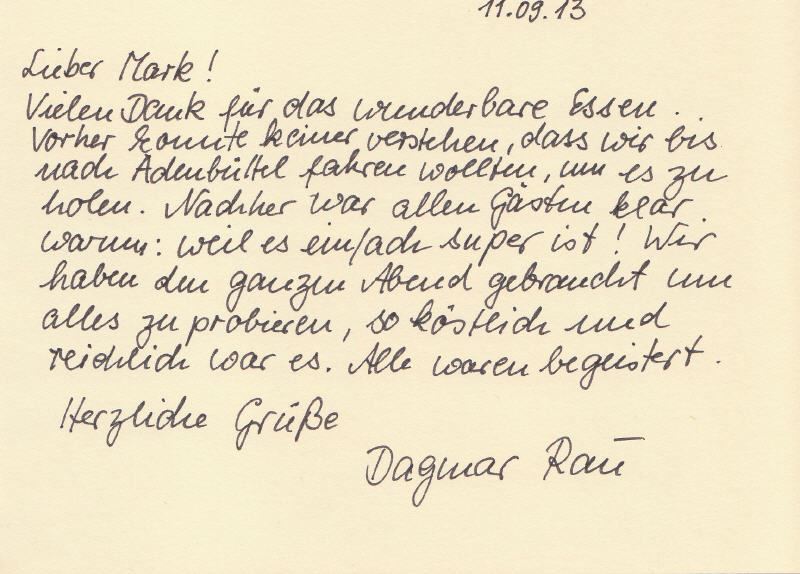 11.09.13
Lieber Mark!
Vielen Dank für das wunderbare Essen.
Vorher konnte keiner verstehen, dass wir bis
nach Adenbüttel fahren wollten, um es zu
holen. Nachher war allen Gästen klar
warum: weil es einfach super ist! Wir
haben den ganzen Abend gebraucht um
alles zu probieren, so köstlich und
reichlich war es. Alle waren begeistert.
Herzliche Grüße
Dagmar Rau